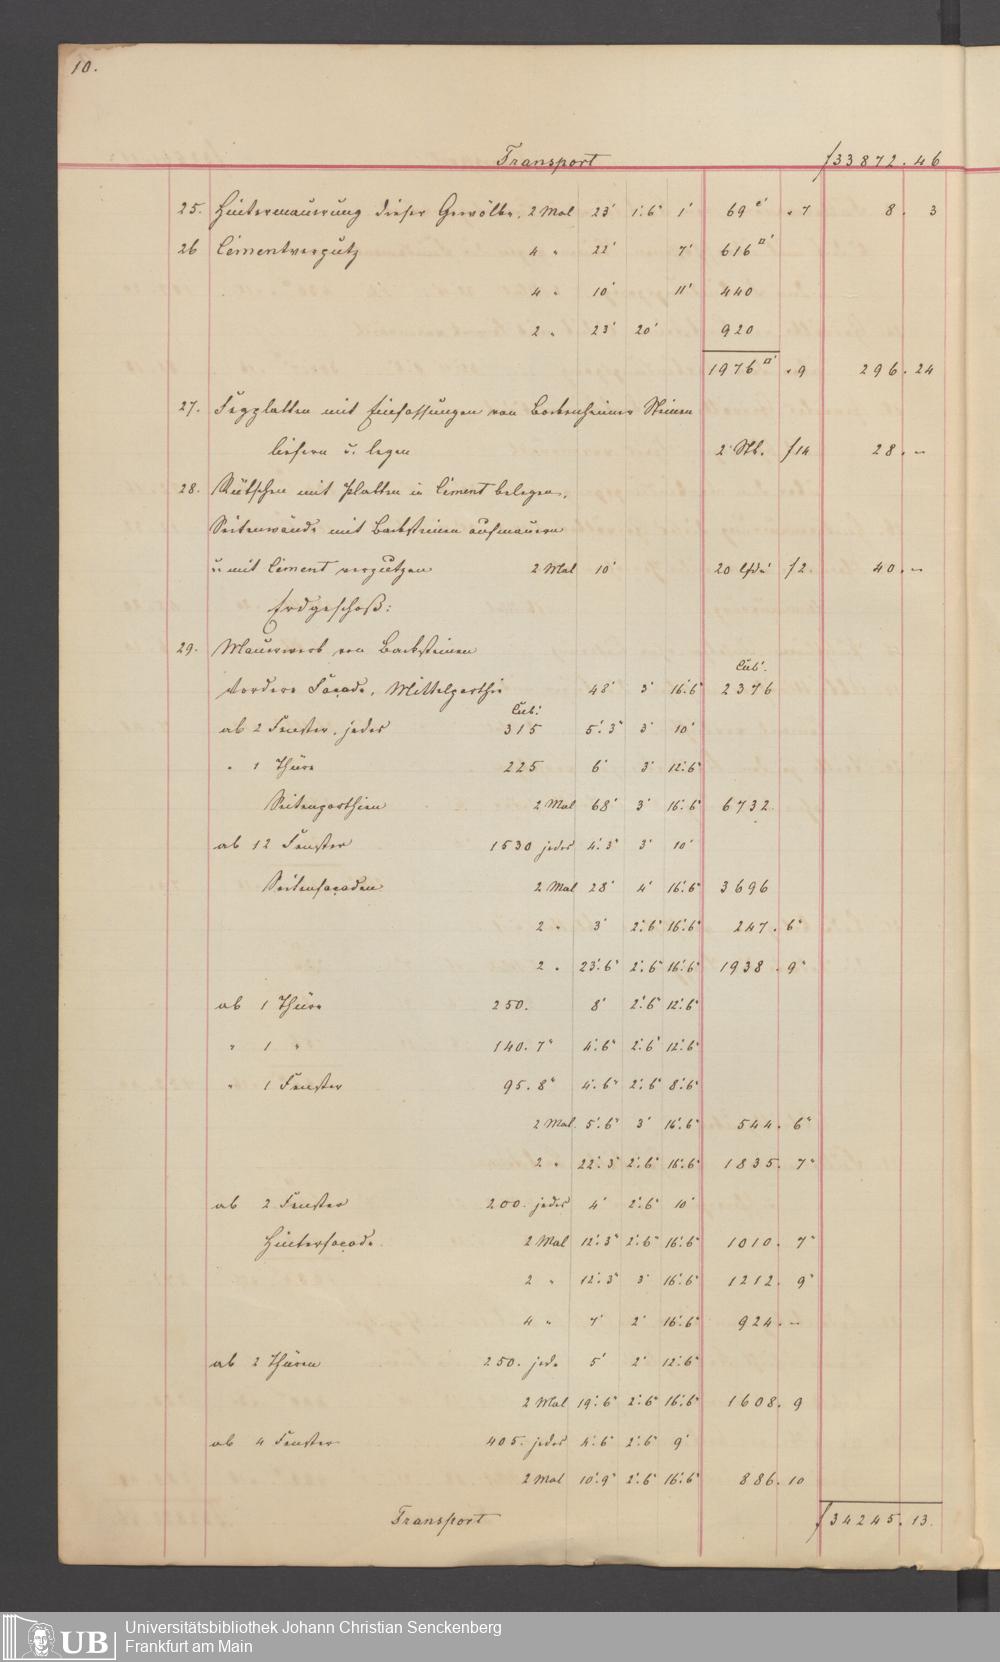 10.
Transport f 33872. 46
25. Hintermauerung dieser Gewölbe, 2 Mal 23' 1'.6" 1' 69 c' " 7 8. 3
26 Cementverputz 4 " 22' 7' 616 □'
4 " 10' 11' 440
2 " 23' 20' 920
1976 □' " 9 296. 24
27. Fegplatten mit Einfassungen von Bockenheimer Steinen
liefern u. legen 2 Stk. f 14 28. –
28. Rütschen mit Platten in Cement belegen,
Seitenwände mit Backsteinen aufmauern
u. mit Cement verputzen 2 Mal 10' 20 lfd' f 2. 40. –
Erdgeschoß:
29. Mauerwerk von Backsteinen
Cub'.
Vordere Façade, Mittelparthie 48' 3' 16'.6" 2376
Cub'.
ab 2 Fenster, jedes 315 5'.3" 3' 10'
" 1 Thüre 225 6' 3' 12'.6"
Seitenparthien 2 Mal 68' 3' 16'.6" 6732
ab 12 Fenster 1530 jedes 4'.3" 3' 10'
Seitenfaçaden 2 Mal 28' 4' 16'.6" 3696
2 " 3' 2'.6" 16'.6" 247. 6"
2 " 23'.6" 2'.6" 16'.6" 1938. 9"
ab 1 Thüre 250. 8' 2'.6" 12'.6"
" 1 " 140. 7" 4'.6" 2'.6" 12'.6"
" 1 Fenster 95. 8" 4'.6" 2'.6" 8'.6"
2 Mal 5'.6" 3' 16'.6" 544. 6"
2 " 22'.3" 2'.6" 16'.6" 1835. 7"
ab 2 Fenster 200. jedes 4' 2'.6" 10'
Hinterfaçade. 2 Mal 12'.3" 2'.6" 16'.6" 1010. 7"
2 " 12'.3" 3' 16'.6" 1212. 9"
4 " 7' 2' 16'.6" 924. –
ab 2 Thüren 250. jede 5' 2' 12'.6"
2 Mal 19'.6" 2'.6" 16'.6" 1608. 9
ab 4 Fenster 405. jedes 4'.6" 2'.6" 9'
2 Mal 10'.9" 2'.6" 16'.6" 886. 10
Transport f 34245. 13.
UB
Universitätsbibliothek Johann Christian Senckenberg
Frankfurt am Main